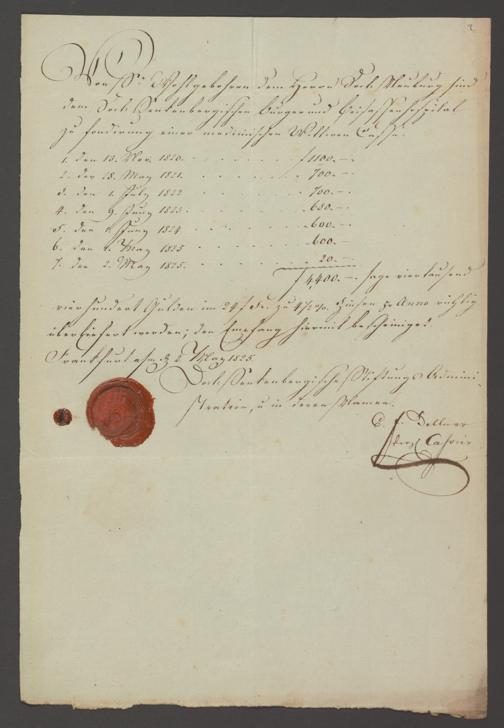 2
Von Sr. Wohlgebohren dem Herrn Doct. Neuburg sind
dem Doct. Senkenbergischen Bürger und Beisassenhospital
zu fondirung einer medicinischen Wittwen Casse:
1. den 13. Nov. 1820. . . . . . . f 1100.–.
2. den 18. May 1821. . . . . . . . 700.–.
3. den 1. July 1822 . . . . . . . 700.–.
4. den 9. Juny 1823. . . . . . . 650.–.
5. den Juny 1824. . . . . . . 600.–.
6. den May 1825 . . . . . . . 600.–.
7. den 2. May 1825. . . . . . . 20.–.
f 4,400.–. sage viertausend
vierhundert Gulden im 24 f zu 4½ %. Zinsen pr Anno richtig
überliefert worden; den Empfang hiermit bescheiniget
Frankfurt a/m d. 2 May 1825.
Doct. Senkenbergische Stiftungs Admini-
stration, u in deren Namen.
Cassier